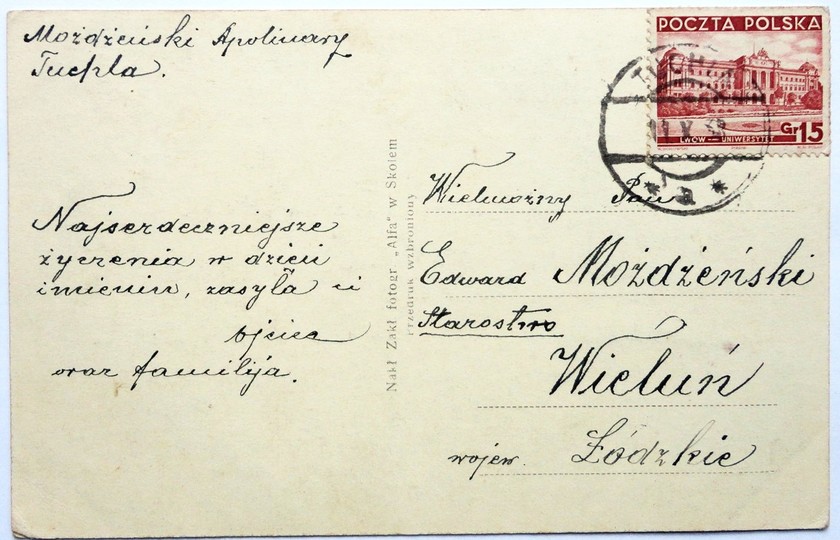 Możdżeński Apolinary
Tuchla.
Najserdeczniejsze
życzenia w dzień
imienin, zasyła ci
ojciec
oraz familija.
Nakł Zakł fotogr „Alfa” w Skolem
przedruk wzbroniony
POCZTA POLSKA
LWÓW — UNIWERSYTET
Gr 15
11 X
* a *
Wielmożny Pan
Edward Możdżeński
Starostwo
Wieluń
wojew. Łódzkie